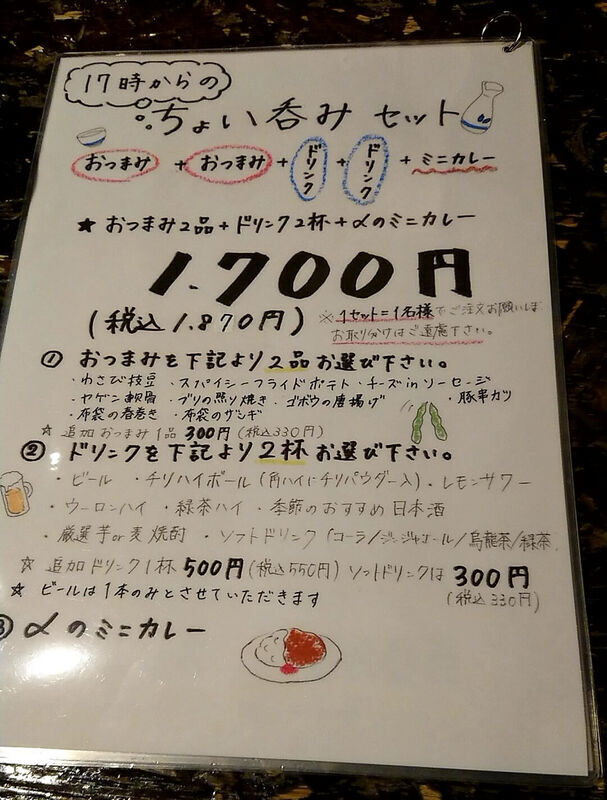 17時からの
ちょい呑みセット
おつまみ + おつまみ + ドリンク + ドリンク + ミニカレー
★ おつまみ2品+ドリンク2杯+αのミニカレー
1.700円
(税込1.870円)
※1セット=1名様でご注文お願いしま
お取り分けはご遠慮下さい。
① おつまみを下記より2品お選び下さい。
・わさび枝豆 ・スパイシーフライドポテト ・チーズinソーセージ
・ヤゲン軟骨 ・ブリの照り焼き ・ゴボウの唐揚げ ・豚串カツ
・布袋の春巻き ・布袋のザンギ
☆ 追加おつまみ1品 300円(税込330円)
② ドリンクを下記より2杯お選び下さい。
・ビール ・チリハイボール(角ハイにチリパウダー入) ・レモンサワー
・ウーロンハイ ・緑茶ハイ ・季節のおすすめ日本酒
・厳選芋or麦焼酎 ・ソフトドリンク(コーラ/ジンジャエール/烏龍茶/緑茶
☆ 追加ドリンク1杯 500円(税込550円) ソフトドリンクは 300円
(税込330円)
☆ ビールは1本のみとさせていただきます
③ αのミニカレー